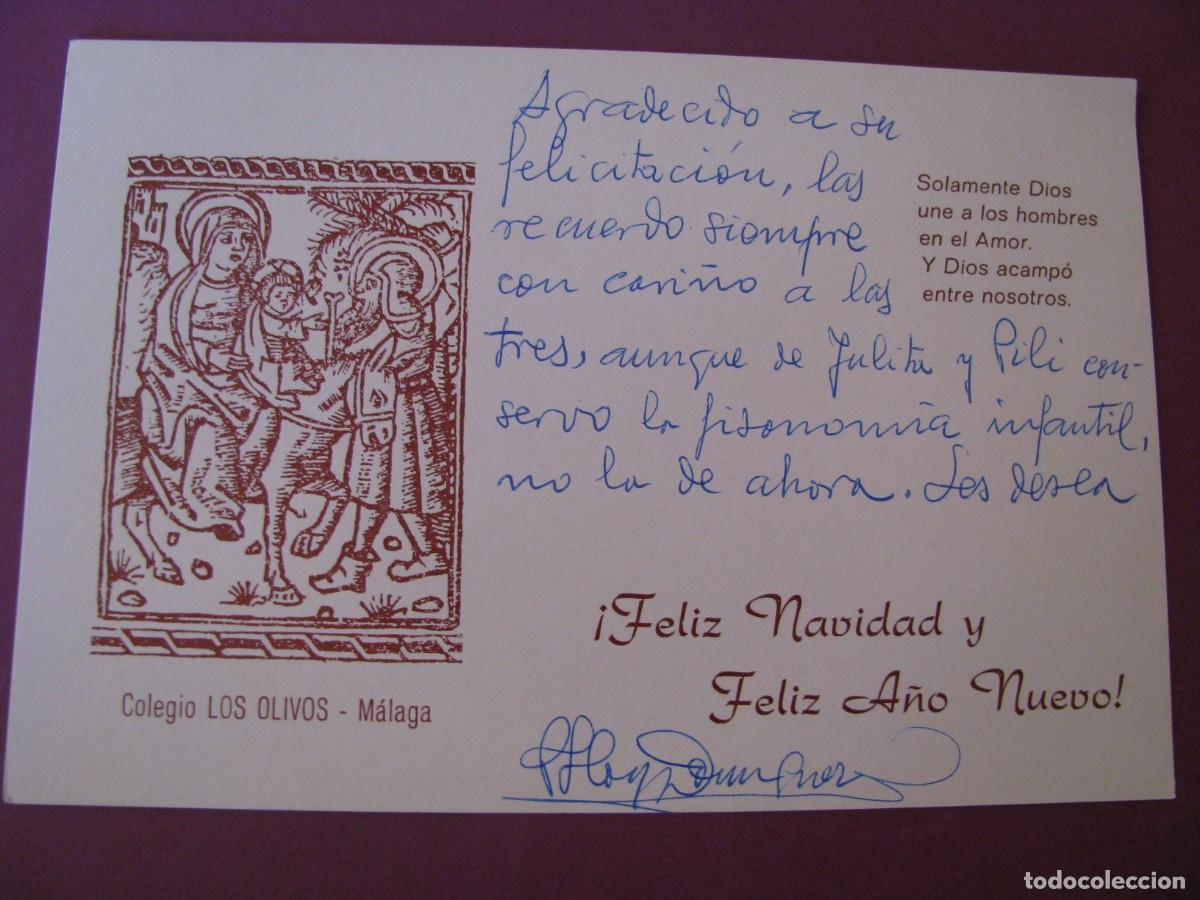 Agradecido a su
felicitación, las
recuerdo siempre
con cariño a las
tres, aunque de Julita y Pili con-
servo la fisonomía infantil,
no la de ahora. Les desea
Solamente Dios
une a los hombres
en el Amor.
Y Dios acampó
entre nosotros.
¡Feliz Navidad y
Feliz Año Nuevo!
Colegio LOS OLIVOS - Málaga
todocoleccion